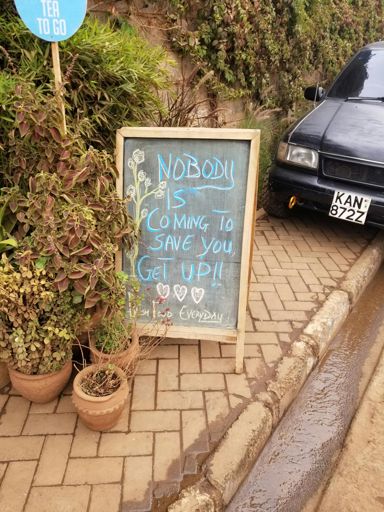 TEA
TO GO
NOBODY
IS
COMING TO
SAVE YOU,
GET UP!!
FRESH FOOD EVERYDAY
KAN
872Z